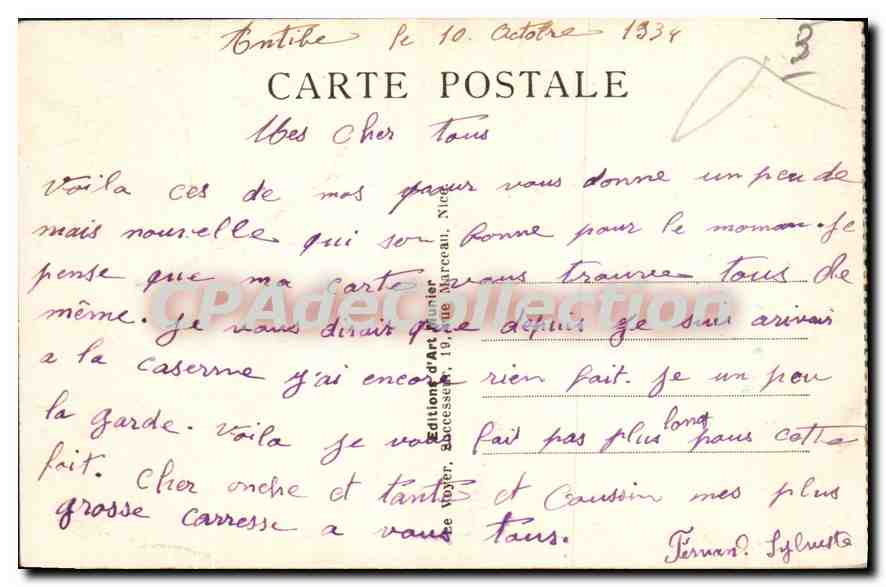 Antibe le 10. Octobre 1934
3
CARTE POSTALE
Mes cher tous
Voila ces de mos pour vous donne un peu de
mais nouvelle qui son bonne pour le moman. Je
pense que ma carte vous trouve tous de
même. Je vous dirait que depuis je suis arivais
a la caserme j'ai encore rien fait. Je un peu
la garde. Voila je vous fait pas plus long pous cette
foit. Cher onche et tante et Coussin mes plus
grosse carresse a vous tous.
Fernand. Sylvestre
Editions d'Art Munier
Le Voyer, Successeur, 19, Rue Marceau, Nice
CPAdeCollection.com